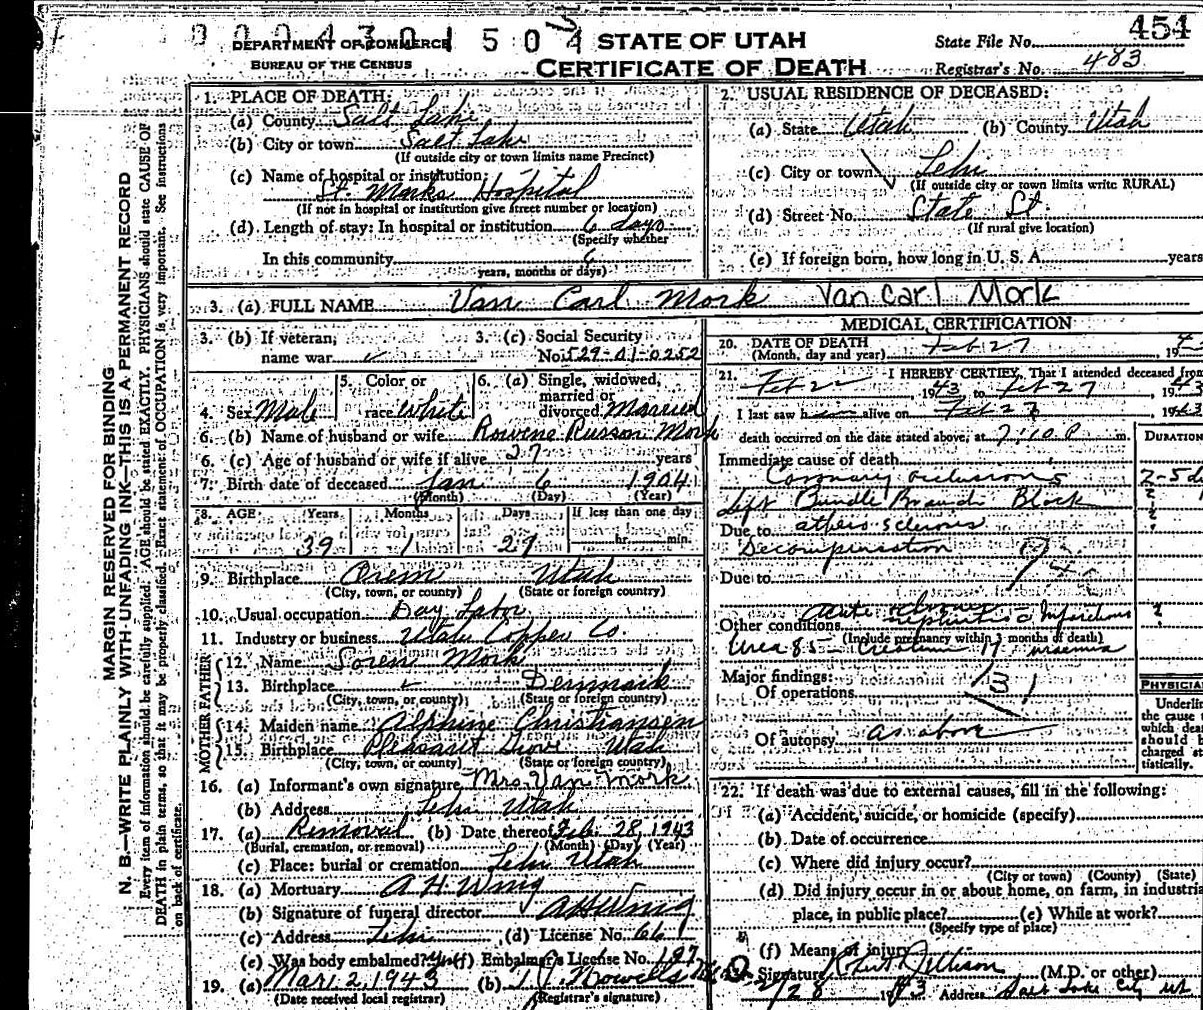 454
DEPARTMENT OF COMMERCE STATE OF UTAH State File No.
BUREAU OF THE CENSUS CERTIFICATE OF DEATH Registrar's No. 483
MARGIN RESERVED FOR BINDING
N. B.—WRITE PLAINLY WITH UNFADING INK—THIS IS A PERMANENT RECORD
Every item of information should be carefully supplied. AGE should be stated EXACTLY. PHYSICIANS should state CAUSE OF
DEATH in plain terms, so that it may be properly classified. Exact statement of OCCUPATION is very important. See instructions
on back of certificate.
1. PLACE OF DEATH:
(a) County Salt Lake
(b) City or town Salt Lake
(If outside city or town limits name Precinct)
(c) Name of hospital or institution:
St. Marks Hospital
(If not in hospital or institution give street number or location)
(d) Length of stay: In hospital or institution 6 days
(Specify whether
In this community 6
years, months or days)
2. USUAL RESIDENCE OF DECEASED:
(a) State Utah (b) County Utah
(c) City or town Lehi
(If outside city or town limits write RURAL)
(d) Street No. State St.
(If rural give location)
(e) If foreign born, how long in U. S. A. years
3. (a) FULL NAME Van Carl Mork Van Carl Mork
3. (b) If veteran, 3. (c) Social Security
name war No. 529-01-0252
4. Sex Male 5. Color or race White 6. (a) Single, widowed, married or divorced Married
6. (b) Name of husband or wife Rowene Russon Mork
6. (c) Age of husband or wife if alive 37 years
7. Birth date of deceased Jan 6 1904
(Month) (Day) (Year)
8. AGE Years Months Days If less than one day
39 1 21 hr. min.
9. Birthplace Orem Utah
(City, town, or county) (State or foreign country)
10. Usual occupation Day Labor
11. Industry or business Utah Copper Co.
FATHER
12. Name Soren Mork
13. Birthplace Denmark
(City, town, or county) (State or foreign country)
MOTHER
14. Maiden name Christiansen
15. Birthplace Pleasant Grove Utah
(City, town, or county) (State or foreign country)
16. (a) Informant's own signature Mrs. Van Mork
(b) Address Lehi Utah
17. (a) Removal (b) Date thereof Feb. 28, 1943
(Burial, cremation, or removal) (Month) (Day) (Year)
(c) Place: burial or cremation Lehi Utah
18. (a) Mortuary A. H. Wing
(b) Signature of funeral director A H Wing
(c) Address Lehi (d) License No. 66
(e) Was body embalmed? Yes (f) Embalmer's License No. 197
19. (a) Mar. 2, 1943 (b)
(Date received local registrar) (Registrar's signature)
MEDICAL CERTIFICATION
20. DATE OF DEATH Feb 27
(Month, day and year) , 19
21. I HEREBY CERTIFY, That I attended deceased from
Feb 22 1943 to Feb 27, 1943
I last saw h alive on Feb 27 1943
death occurred on the date stated above, at 7:10 P m. DURATION
Immediate cause of death
Coronary occlusions
Left Bundle Branch Block
Due to
Decompensation
Due to
Other conditions
(Include pregnancy within 3 months of death)
Urea 85 — 17 uraemia
Major findings:
Of operations
Of autopsy as above
PHYSICIAN
Underline
the cause
which death
should be
charged sta-
tistically.
22. If death was due to external causes, fill in the following:
(a) Accident, suicide, or homicide (specify)
(b) Date of occurrence
(c) Where did injury occur?
(City or town) (County) (State)
(d) Did injury occur in or about home, on farm, in industrial
place, in public place? (e) While at work?
(Specify type of place)
(f) Means of injury
Signature (M.D. or other)
2/28 1943 Address Salt Lake City Ut.